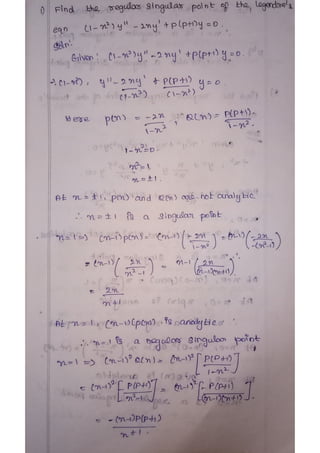 1) Find the regular singular point of the legendre's
eqn (1-x²)y'' - 2xy' + p(p+1)y = 0.
Soln:
Given: (1-x²)y'' - 2xy' + p(p+1)y = 0.
÷(1-x²), y'' - 2xy'/(1-x²) + P(P+1)/(1-x²) y = 0.
Here P(x) = -2x/(1-x²), Q(x) = P(P+1)/(1-x²).
1-x² = 0
x² = 1
x = ±1.
At x = ±1, P(x) and Q(x) are not analytic.
∴ x = ±1 is a singular point
x=1 => (x-1)P(x) = (x-1)(-2x/(1-x²)) = (x-1)(-2x/-(x²-1))
= (x-1)(2x/(x²-1)) = x-1(2x/((x-1)(x+1)))
= 2x/(x+1)
At x=1, (x-1)(P(x)) is analytic
∴ x=1 is a regular singular point
x=1 => (x-1)² Q(x) = (x-1)² [P(P+1)/(1-x²)]
= (x-1)² [-P(P+1)/(x²-1)] = (x-1)² [-P(P+1)/((x-1)(x+1))].
= -(x-1)P(P+1)/(x+1).